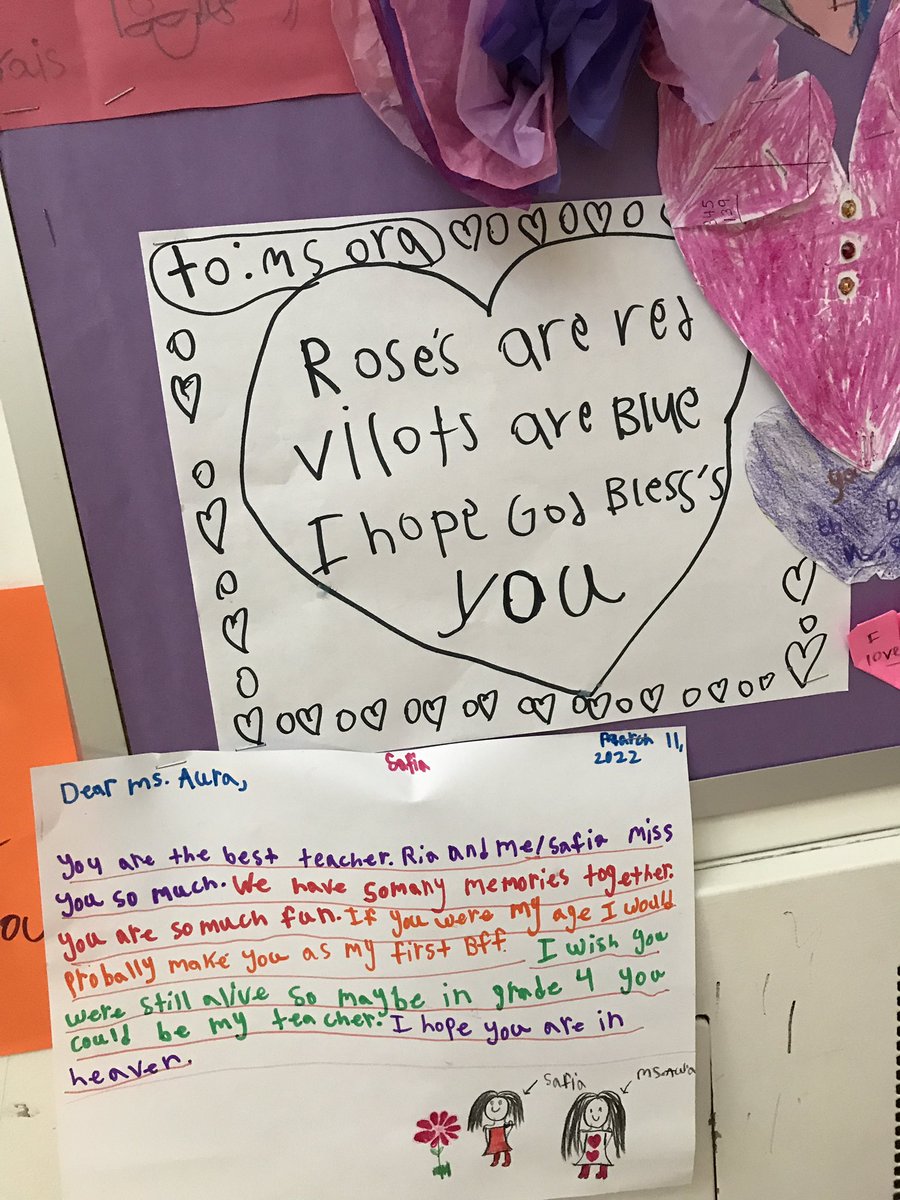 rais
to: ms ora
Rose's are red
vilots are Blue
I hope God Bless's
you
345
139
I
love
Safia
March 11,
2022
Dear ms. Aura,
you are the best teacher. Ria and me/Safia miss
you so much. We have somany memories together.
you are so much fun. If you were my age I would
probally make you as my first Bff. I wish you
were still alive so maybe in grade 4 you
could be my teacher. I hope you are in
heaven.
Safia
ms. Aura